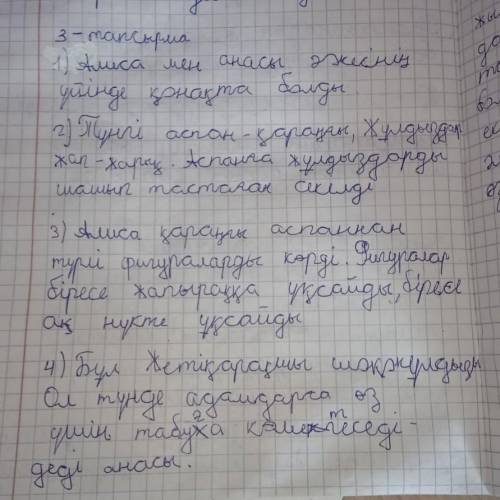 3-тапсырма
1) Алиса мен анасы әжесінің
үйінде қонақта болды
2) Түнгі аспан-қараңғы, Жұлдыздар
жап-жарық. Аспанға жұлдыздарды
шашып тастаған секілді
3) Алиса қараңғы аспаннан
түрлі фигураларды көрді. Фигуралар
біресе жапыраққа ұқсайды, біресе
ақ нүкте ұқсайды
4) Бұл Жетіқарақшы шоқжұлдызы
Ол түнде адамдарға өз
үйін табуға көмектеседі-
деді анасы.